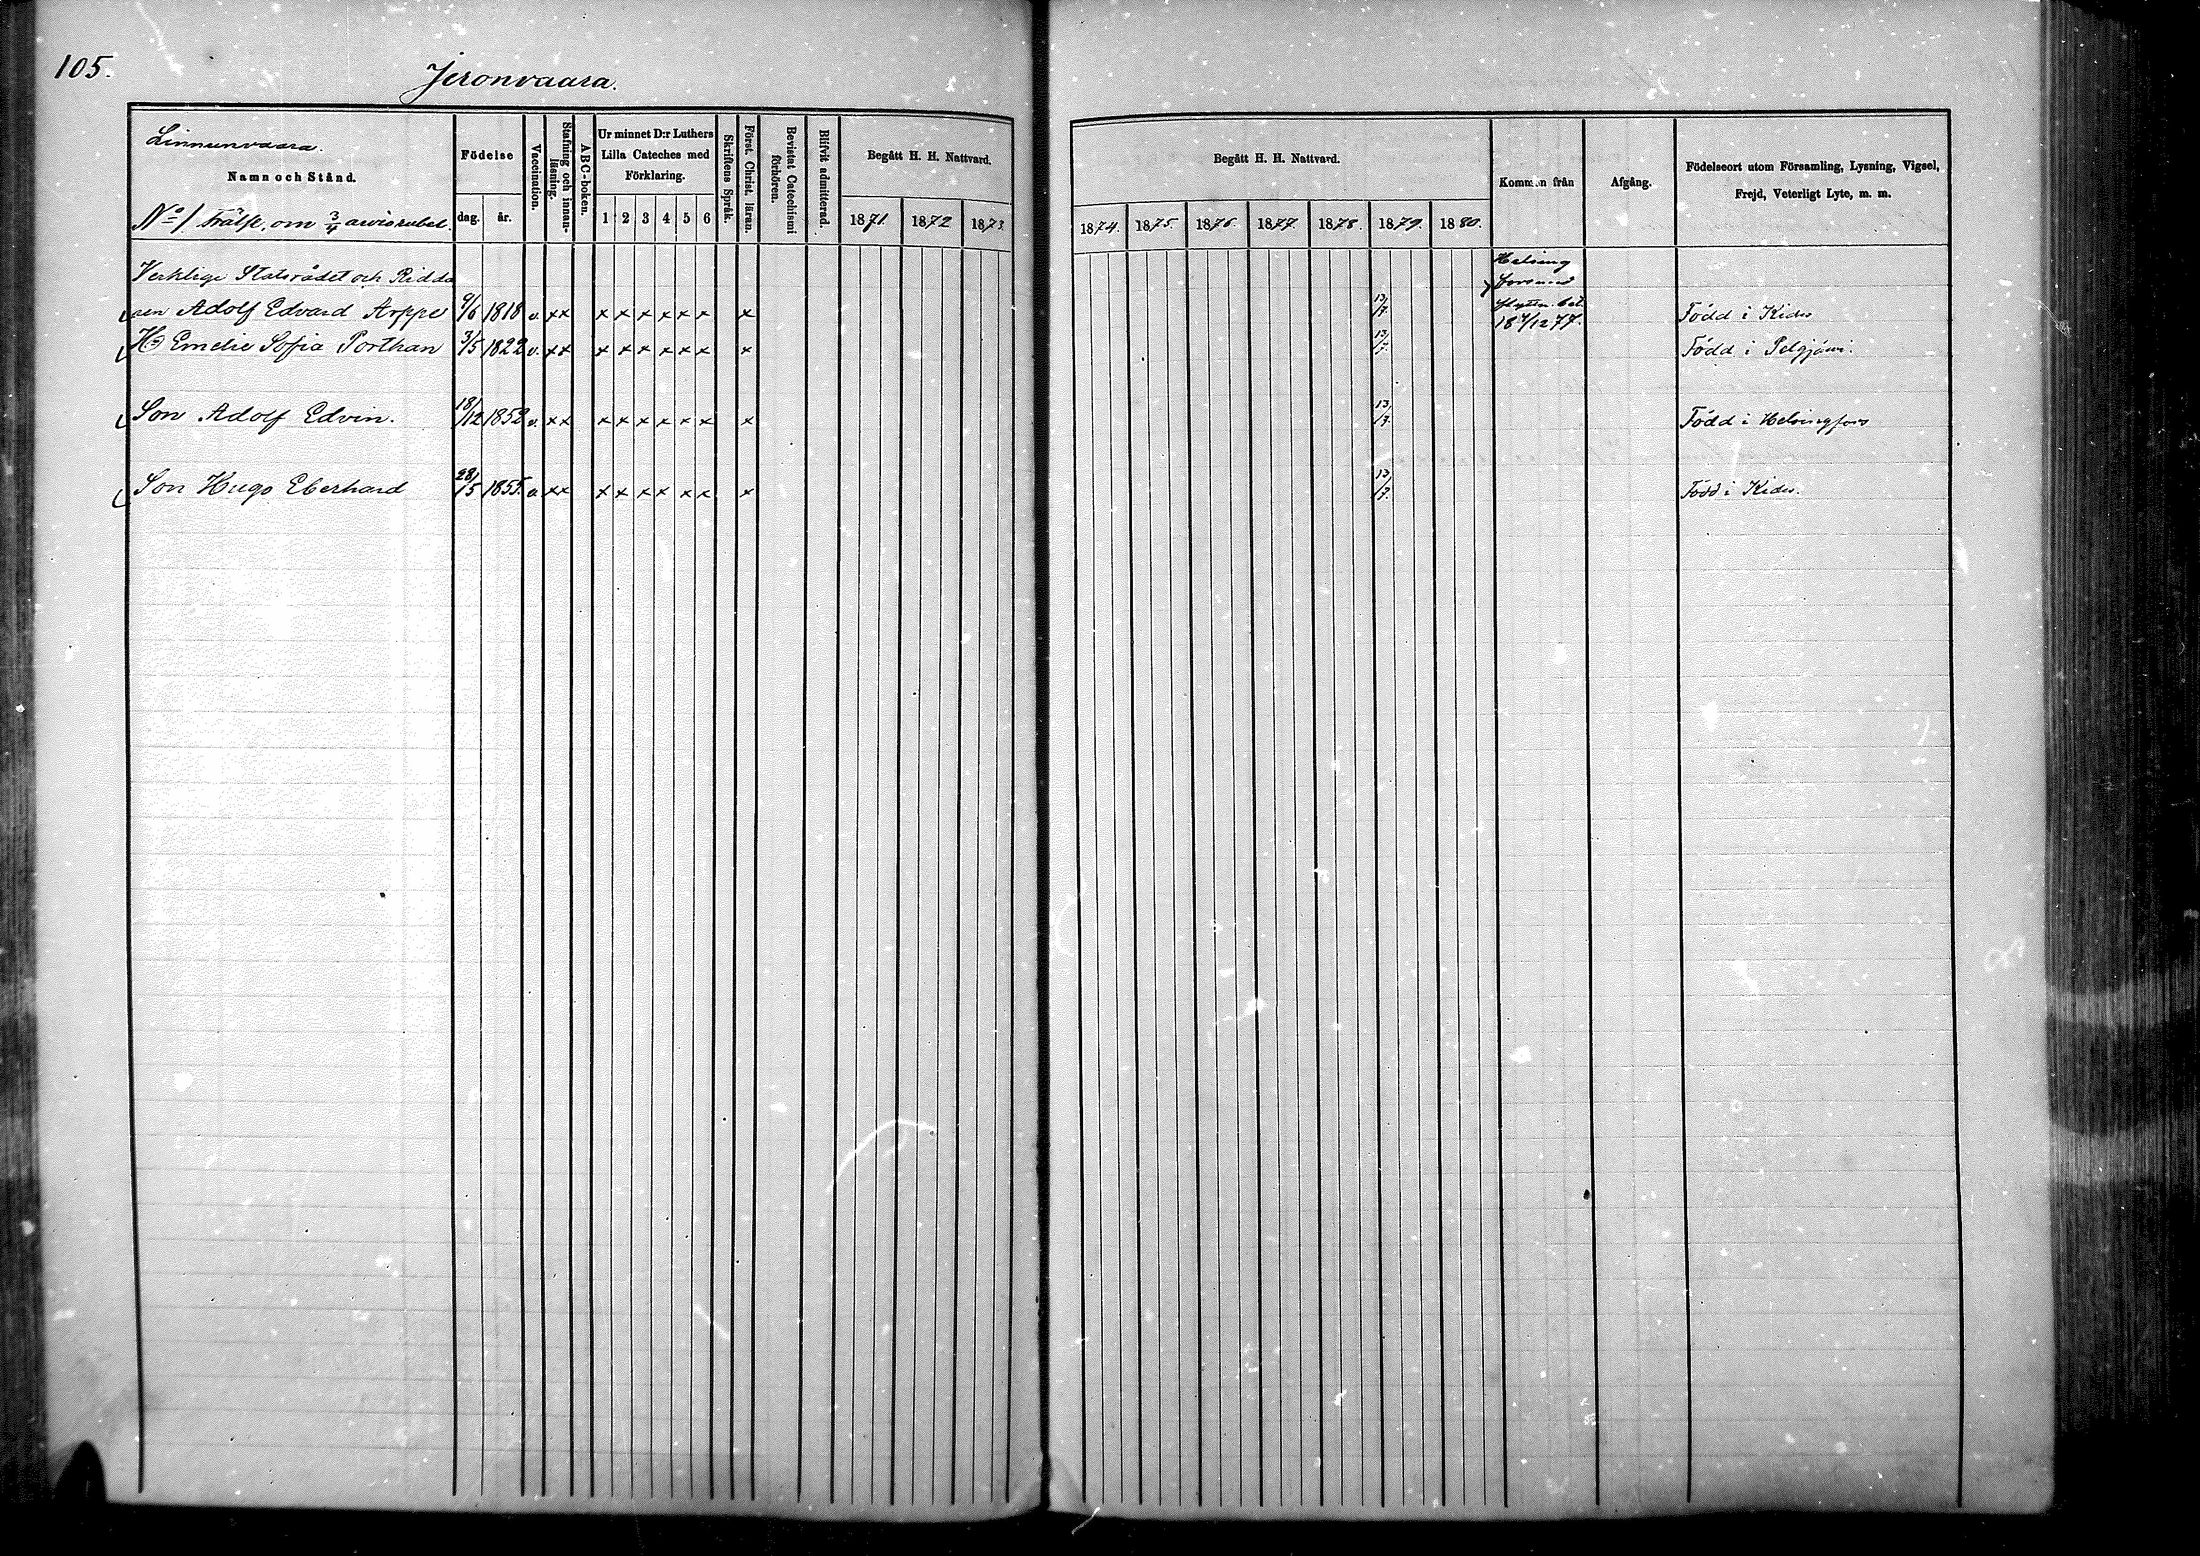 105.
Jeronvaara.
Linnunvaara.
Namn och Stånd.
No 1 Frälse, om 3/4 arvisrubel.
Födelse
dag. år.
Vaccination.
Stafning och innan-läsning.
ABC-boken.
Ur minnet D:r Luthers
Lilla Cateches med
Förklaring.
1 2 3 4 5 6
Skriftens Språk.
Först. Christ. läran.
Bevistat Catechismi förhören.
Blifvit admitterad.
Begått H. H. Nattvard.
1871. 1872 1873.
Begått H. H. Nattvard.
1874. 1875. 1876. 1877. 1878. 1879. 1880.
Kommen från
Afgång.
Födelseort utom Församling, Lysning, Vigsel,
Frejd, Veterligt Lyte, m. m.
Verklige Statsrådet och Ridda
ren Adolf Edvard Arppe 9/6 1818 v. x x x x x x x x x 13/7. Född i Kides
Helsing
fors med
flyttn. bet.
18 4/12 77.
H. Emelie Sofia Porthan 3/5 1822 v. x x x x x x x x x 13/7. Född i Pelgjärvi.
Son Adolf Edvin. 18/12 1852 v. x x x x x x x x x 13/7. Född i Helsingfors
Son Hugo Eberhard 28/5 1855. v. x x x x x x x x x 13/7. Född i Kides.